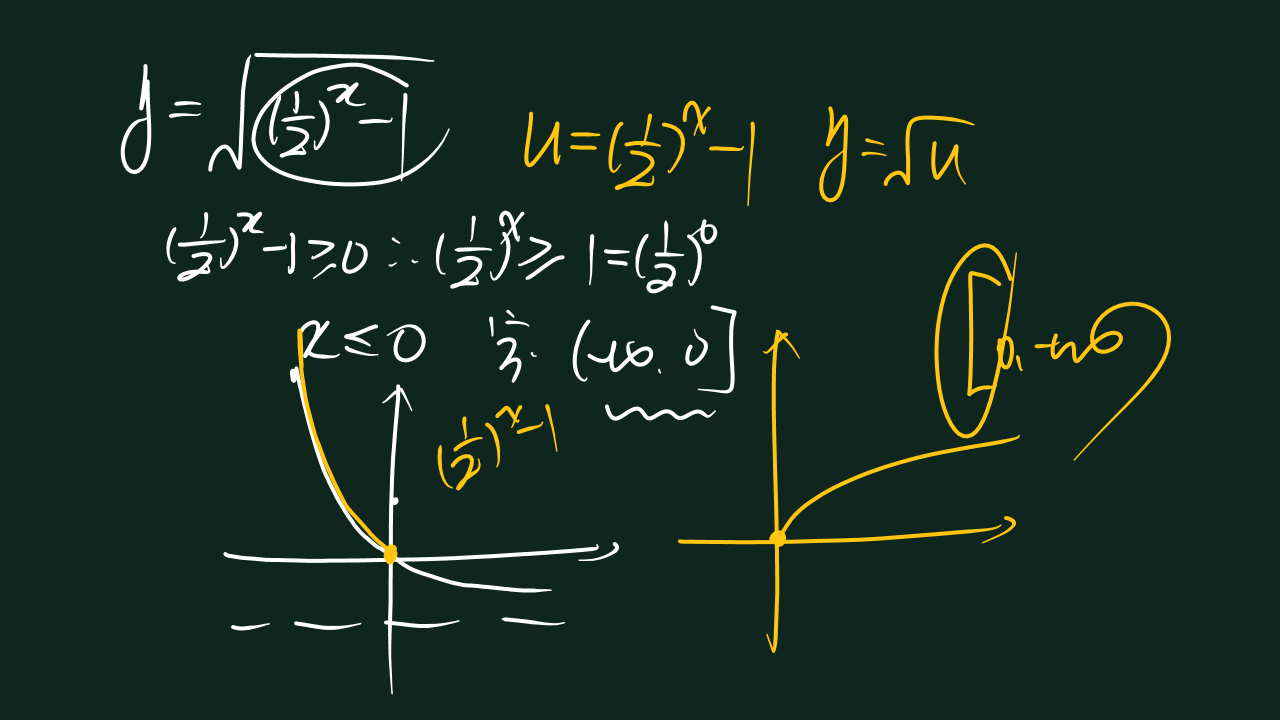 y = √((1/2)^x - 1) u = (1/2)^x - 1 y = √u
(1/2)^x - 1 ≥ 0 ∴ (1/2)^x ≥ 1 = (1/2)^0
x ≤ 0 (-∞, 0] [0, +∞)
(1/2)^x - 1